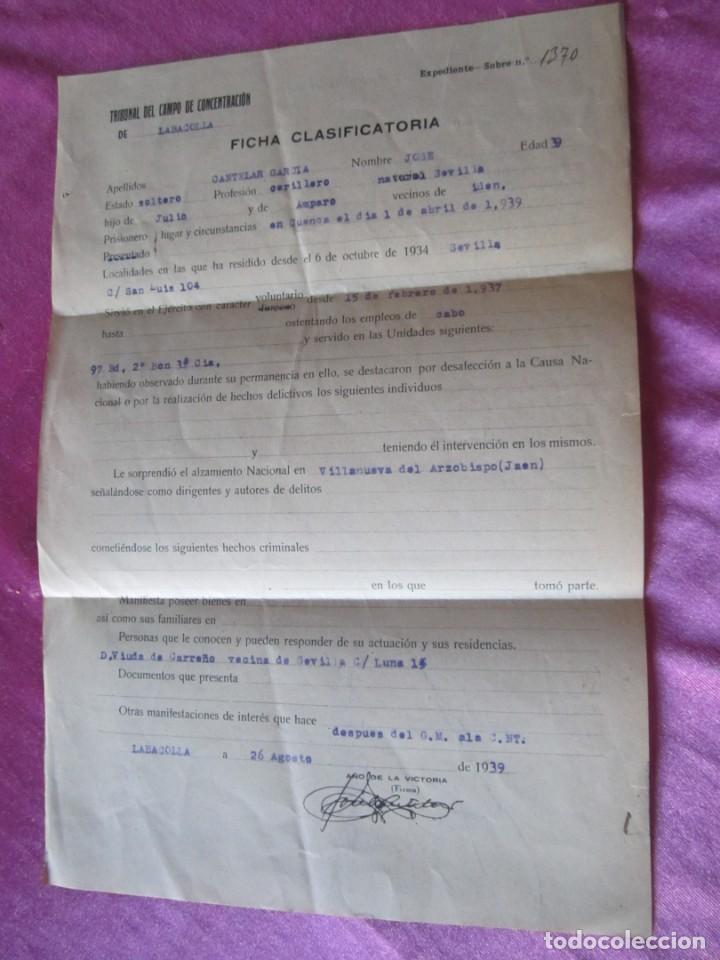 Expediente - Sobre n.° 1370
TRIBUNAL DEL CAMPO DE CONCENTRACIÓN
DE LABACOLLA
FICHA CLASIFICATORIA
Apellidos CANTELAR GARCIA Nombre JOSE Edad 39
Estado soltero Profesión cerillero natural Sevilla
hijo de Julio y de Amparo vecinos de iden,
Prisionero lugar y circunstancias en Cuenca el dia 1 de abril de 1,939
Presentado
Localidades en las que ha residido desde el 6 de octubre de 1934 Sevilla
C/ San Luis 104
Sirvió en el Ejército con caracter voluntario desde 15 de febrero de 1,937
forzoso
hasta ostentando los empleos de cabo
y servido en las Unidades siguientes:
97 Bd, 2º Bon 3ª Cia,
habiendo observado durante su permanencia en ello, se destacaron por desafección a la Causa Na-
cional o por la realización de hechos delictivos los siguientes individuos
y teniendo él intervención en los mismos.
Le sorprendió el alzamiento Nacional en Villanueva del Arzobispo(Jaen)
señalándose como dirigentes y autores de delitos
cometiéndose los siguientes hechos criminales
en los que tomó parte.
Manifiesta poseer bienes en
así como sus familiares en
Personas que le conocen y pueden responder de su actuación y sus residencias.
D,Viuda de Carreño vecina de Sevilla C/ Luna 15
Documentos que presenta
Otras manifestaciones de interés que hace despues del G.M. ala C.NT.
LABACOLLA a 26 Agosto de 1939
AÑO DE LA VICTORIA
(Firma)
todocoleccion